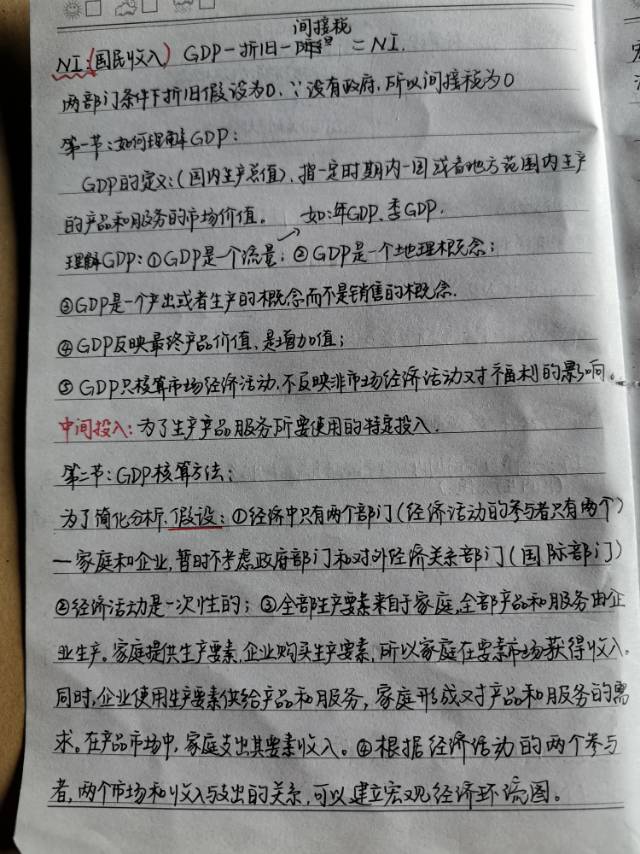 间接税
NI:(国民收入) GDP-折旧- =NI.
两部门条件下折旧假设为0, ∵没有政府,所以间接税为0
第一节:如何理解GDP:
GDP的定义:(国内生产总值),指一定时期内一国或者地方范围内生产
的产品和服务的市场价值。 如:年GDP、季GDP.
理解GDP:①GDP是一个流量;②GDP是一个地理概念;
③GDP是一个产出或者生产的概念而不是销售的概念.
④GDP反映最终产品价值,是增加值;
⑤GDP只核算市场经济活动,不反映非市场经济活动对福利的影响。
中间投入:为了生产产品服务所要使用的特定投入.
第二节:GDP核算方法:
为了简化分析.假设:①经济中只有两个部门(经济活动的参与者只有两个)
—家庭和企业,暂时不考虑政府部门和对外经济关系部门(国际部门)
②经济活动是一次性的;③全部生产要素来自于家庭,全部产品和服务由企
业生产。家庭提供生产要素,企业购买生产要素,所以家庭在要素市场获得收入。
同时,企业使用生产要素供给产品和服务,家庭形成对产品和服务的需
求。在产品市场中,家庭支出其要素收入。④根据经济活动的两个参与
者,两个市场和收入与支出的关系,可以建立宏观经济环流图。